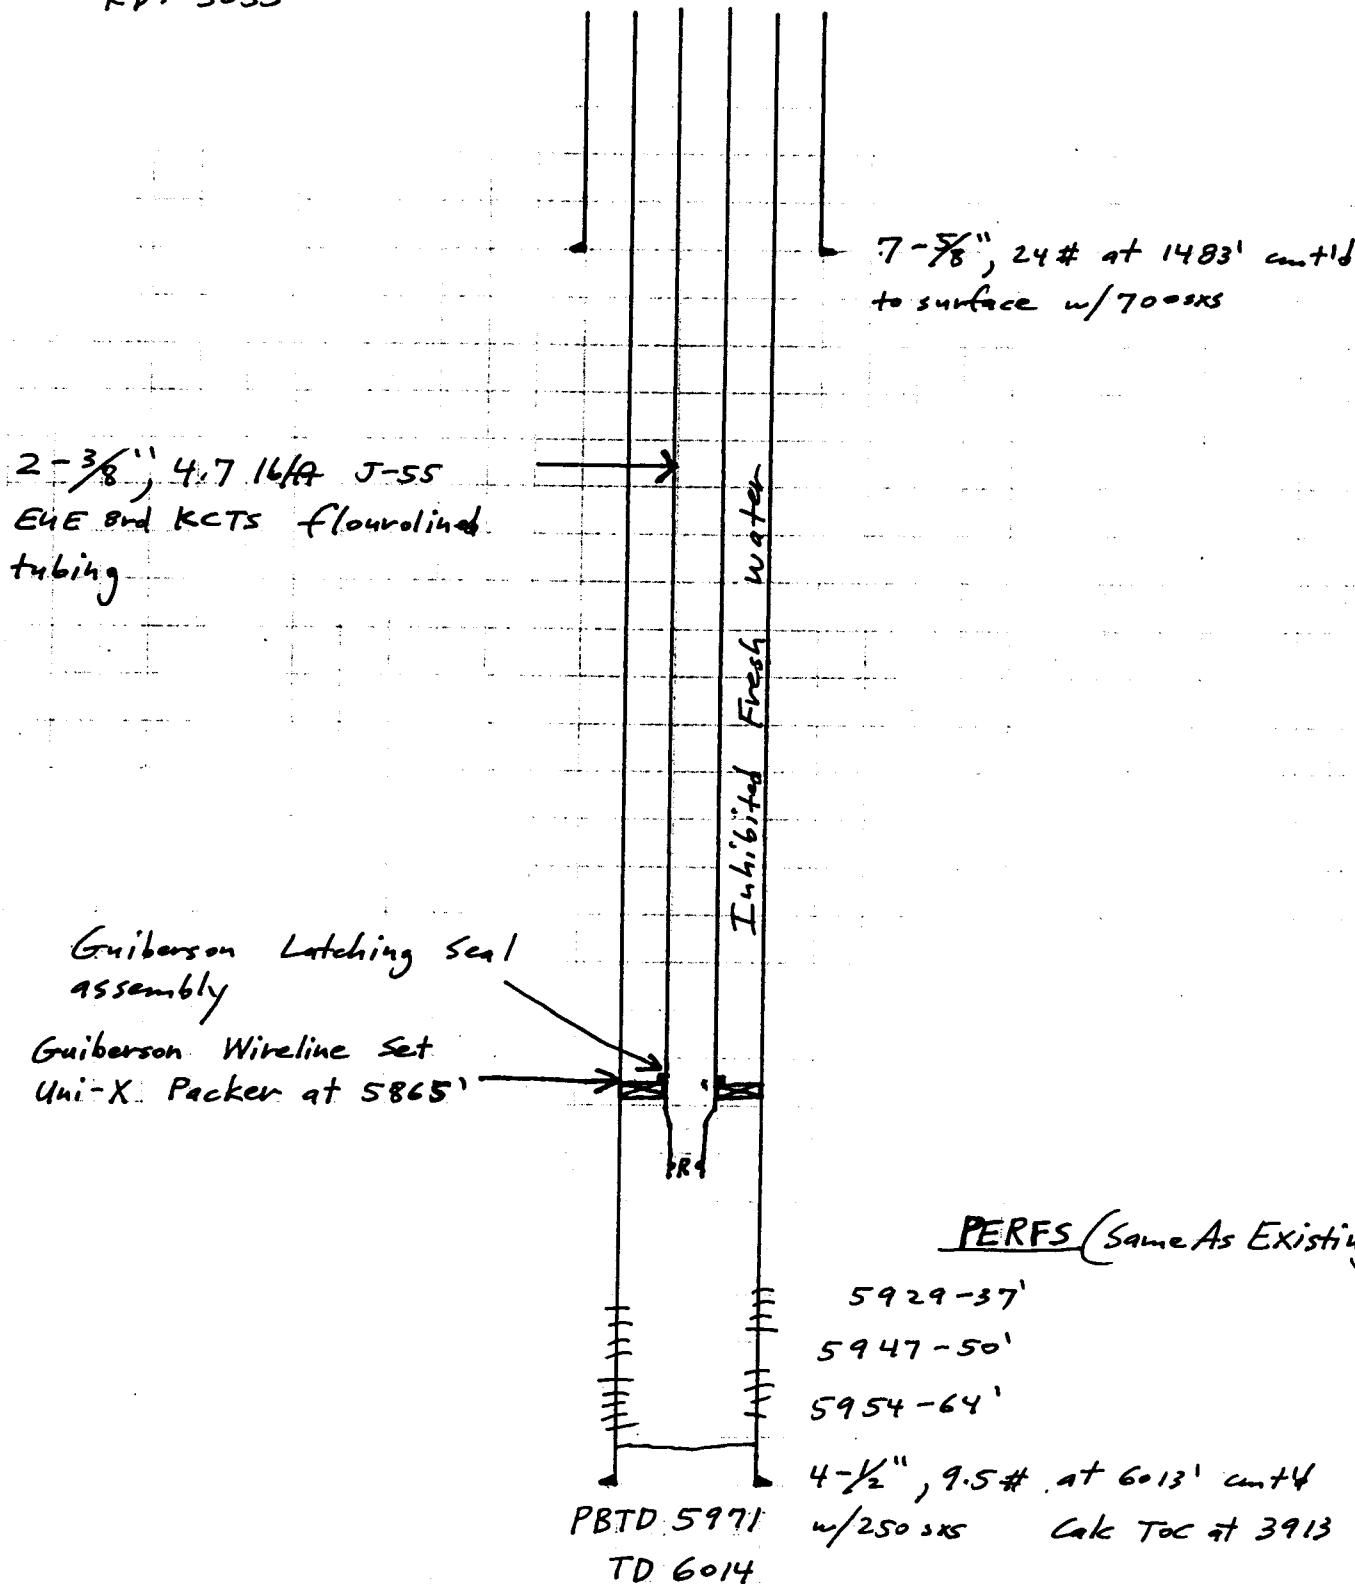 7-5/8", 24# at 1483' cmt'd
to surface w/700sxs
2-3/8", 4.7 lb/ft J-55
EUE 8rd KCTS flourolined
tubing
Inhibited Fresh Water
Guiberson Latching Seal
assembly
Guiberson Wireline Set
Uni-X Packer at 5865'
R
PERFS (Same As Existin
5929-37'
5947-50'
5954-64'
4-1/2", 9.5# at 6013' cmt'd
w/250 sxs Calc TOC at 3913
PBTD 5971
TD 6014